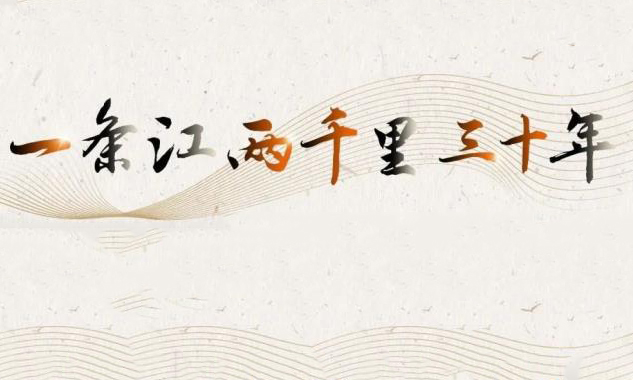 一条江 两千里 三十年